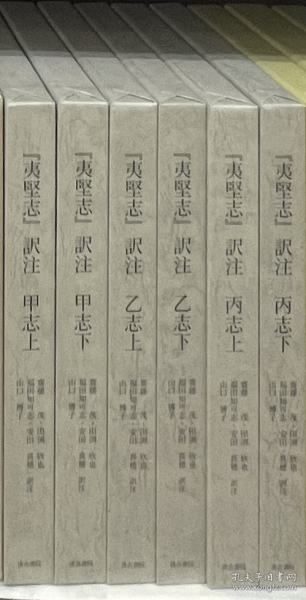 『夷堅志』訳注 甲志上
齋藤 茂・田渕 欣也
福田知可志・安田 真穂 訳注
山口 博子
『夷堅志』訳注 甲志下
齋藤 茂・田渕 欣也
福田知可志・安田 真穂 訳注
山口 博子
『夷堅志』訳注 乙志上
齋藤 茂・田渕 欣也
福田知可志・安田 真穂 訳注
山口 博子
『夷堅志』訳注 乙志下
齋藤 茂・田渕 欣也
福田知可志・安田 真穂 訳注
山口 博子
『夷堅志』訳注 丙志上
齋藤 茂・田渕 欣也
福田知可志・安田 真穂 訳注
山口 博子
『夷堅志』訳注 丙志下
齋藤 茂・田渕 欣也
福田知可志・安田 真穂 訳注
山口 博子
孔夫子旧书网